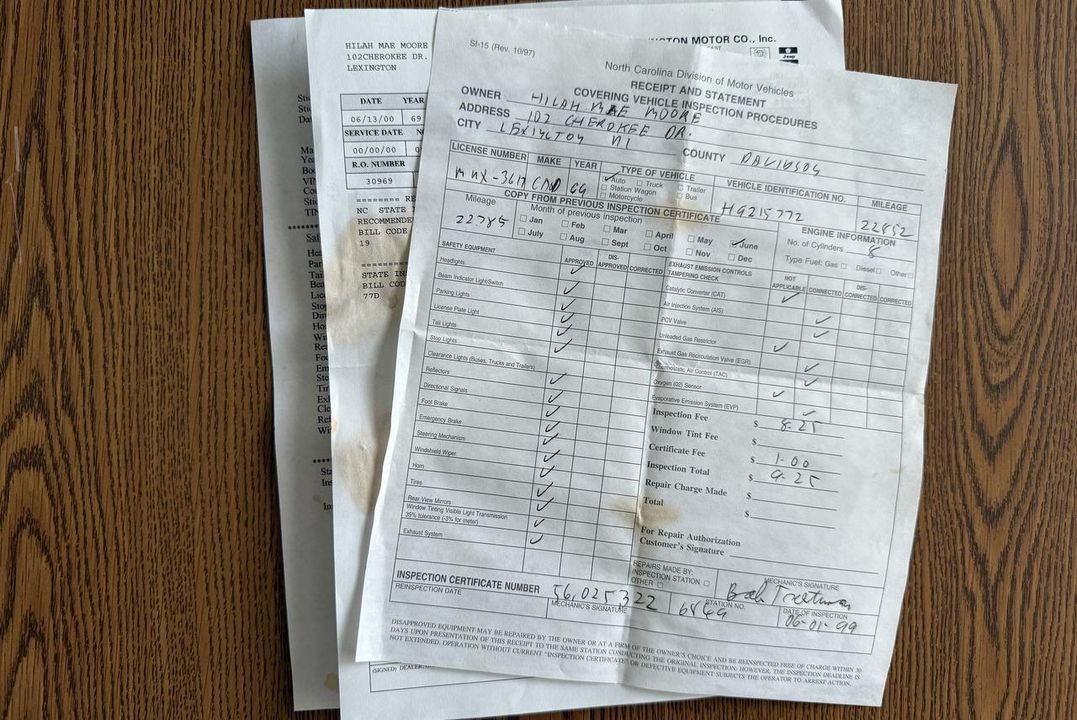 HILAH MAE MOORE
102CHEROKEE DR.
LEXINGTON
DATE YEAR
06/13/00 69
SERVICE DATE
00/00/00
R.O. NUMBER
30969
NC STATE
RECOMMENDE
BILL CODE
19
STATE INS
BILL COD
77D
NGTON MOTOR CO., Inc.
Jeep
SI-15 (Rev. 10/97)
North Carolina Division of Motor Vehicles
RECEIPT AND STATEMENT
COVERING VEHICLE INSPECTION PROCEDURES
OWNER HILAH MAE MOORE
ADDRESS 102 CHEROKEE DR.
CITY LEXINGTON
COUNTY DAVIDSON
LICENSE NUMBER MAKE YEAR TYPE OF VEHICLE VEHICLE IDENTIFICATION NO. MILEAGE
69 Auto Truck Trailer
Station Wagon Bus
Motorcycle
H9215772 22852
COPY FROM PREVIOUS INSPECTION CERTIFICATE ENGINE INFORMATION
Mileage Month of previous inspection No. of Cylinders 8
22785 Jan Feb Mar April May June
July Aug Sept Oct Nov Dec
Type Fuel: Gas Diesel Other
SAFETY EQUIPMENT APPROVED DIS-APPROVED CORRECTED
EXHAUST EMISSION CONTROLS TAMPERING CHECK NOT APPLICABLE CONNECTED DIS-CONNECTED CORRECTED
Headlights
Beam Indicator Light/Switch
Parking Lights
License Plate Light
Tail Lights
Stop Lights
Clearance Lights (Buses, Trucks and Trailers)
Reflectors
Directional Signals
Foot Brake
Emergency Brake
Steering Mechanism
Windshield Wiper
Horn
Tires
Rear View Mirrors
Window Tinting Visible Light Transmission
35% tolerance (-3% for meter)
Exhaust System
Catalytic Converter (CAT)
Air Injection System (AIS)
PCV Valve
Unleaded Gas Restrictor
Exhaust Gas Recirculation Valve (EGR)
Thermostatic Air Control (TAC)
Oxygen (02) Sensor
Evaporative Emission System (EVP)
Inspection Fee $ 8.25
Window Tint Fee $
Certificate Fee $ 1.00
Inspection Total $ 9.25
Repair Charge Made $
Total $
For Repair Authorization
Customer's Signature
INSPECTION CERTIFICATE NUMBER 56025322
REPAIRS MADE BY:
INSPECTION STATION
OTHER
MECHANIC'S SIGNATURE
REINSPECTION DATE MECHANIC'S SIGNATURE STATION NO. DATE OF INSPECTION
06-01-99
DISAPPROVED EQUIPMENT MAY BE REPAIRED BY THE OWNER OR AT A FIRM OF THE OWNER'S CHOICE AND BE REINSPECTED FREE OF CHARGE WITHIN 30
DAYS UPON PRESENTATION OF THIS RECEIPT TO THE SAME STATION CONDUCTING THE ORIGINAL INSPECTION. HOWEVER, THE INSPECTION DEADLINE IS
NOT EXTENDED. OPERATION WITHOUT CURRENT "INSPECTION CERTIFICATE" OR DEFECTIVE EQUIPMENT SUBJECTS THE OPERATOR TO ARREST ACTION.
(SIGNED) DEALER